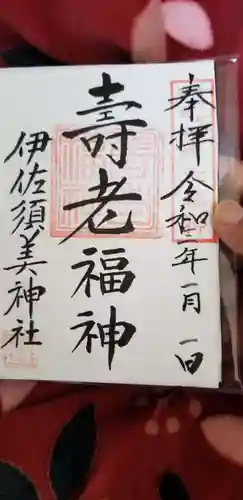 奉拝 令和二年一月一日
壽老福神
伊佐須美神社